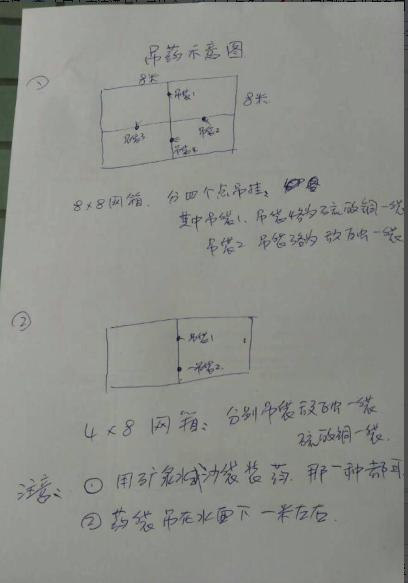 吊药示意图
①
8米
8米
吊袋1
吊袋2
吊袋3
吊袋4
8×8网箱. 分四个点吊挂;
其中吊袋1、吊袋4各为硫酸铜一袋
吊袋2 吊袋3各为敌百虫一袋
②
吊袋1
吊袋2.
4×8 网箱: 分别吊袋敌百虫一袋
硫酸铜一袋.
注意: ① 用矿泉水或沙袋装药. 那一种都可
② 药袋吊在水面下一米左右.